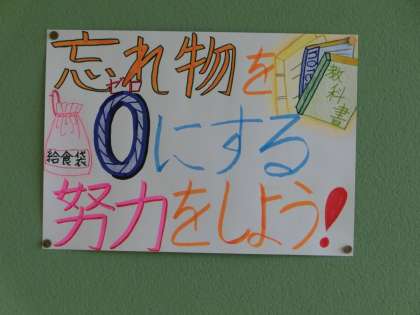 忘れ物を
ゼロ
0にする
努力をしよう!
給食袋
教科書